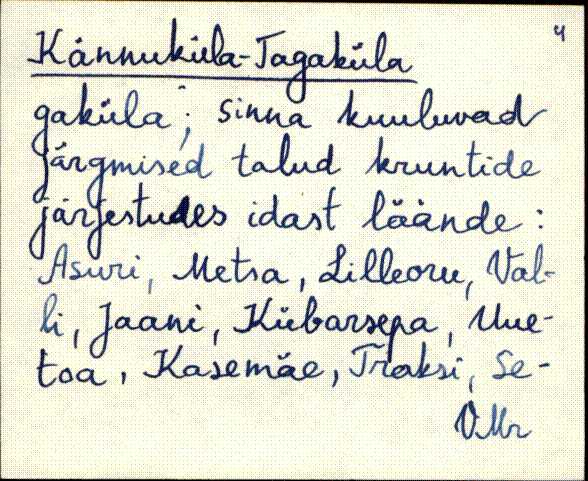 4
Kännuküla-Tagaküla
gaküla"; sinna kuuluvad
järgmised talud kruntide
järjestudes idast läände:
Asuri, Metsa, Lilleoru, Val-
li, Jaani, Kübarsepa, Uue-
toa, Kasemäe, Traksi, Se-
VMr